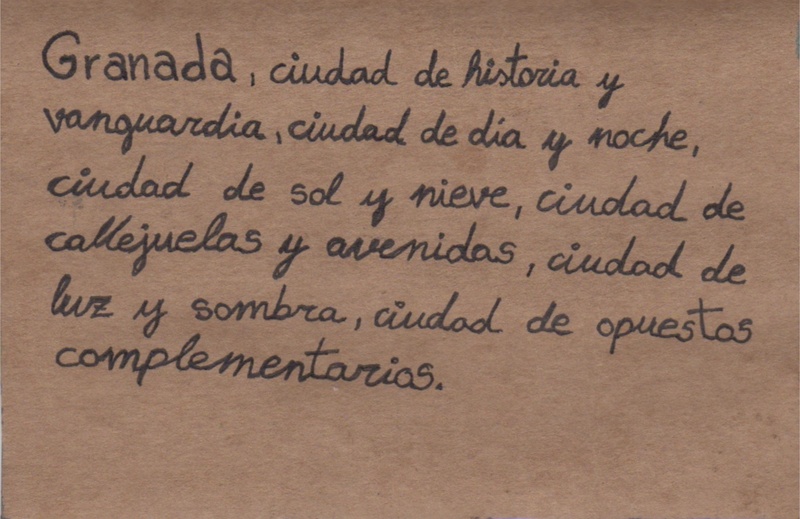 Granada, ciudad de historia y
vanguardia, ciudad de día y noche,
ciudad de sol y nieve, ciudad de
callejuelas y avenidas, ciudad de
luz y sombra, ciudad de opuestos
complementarios.